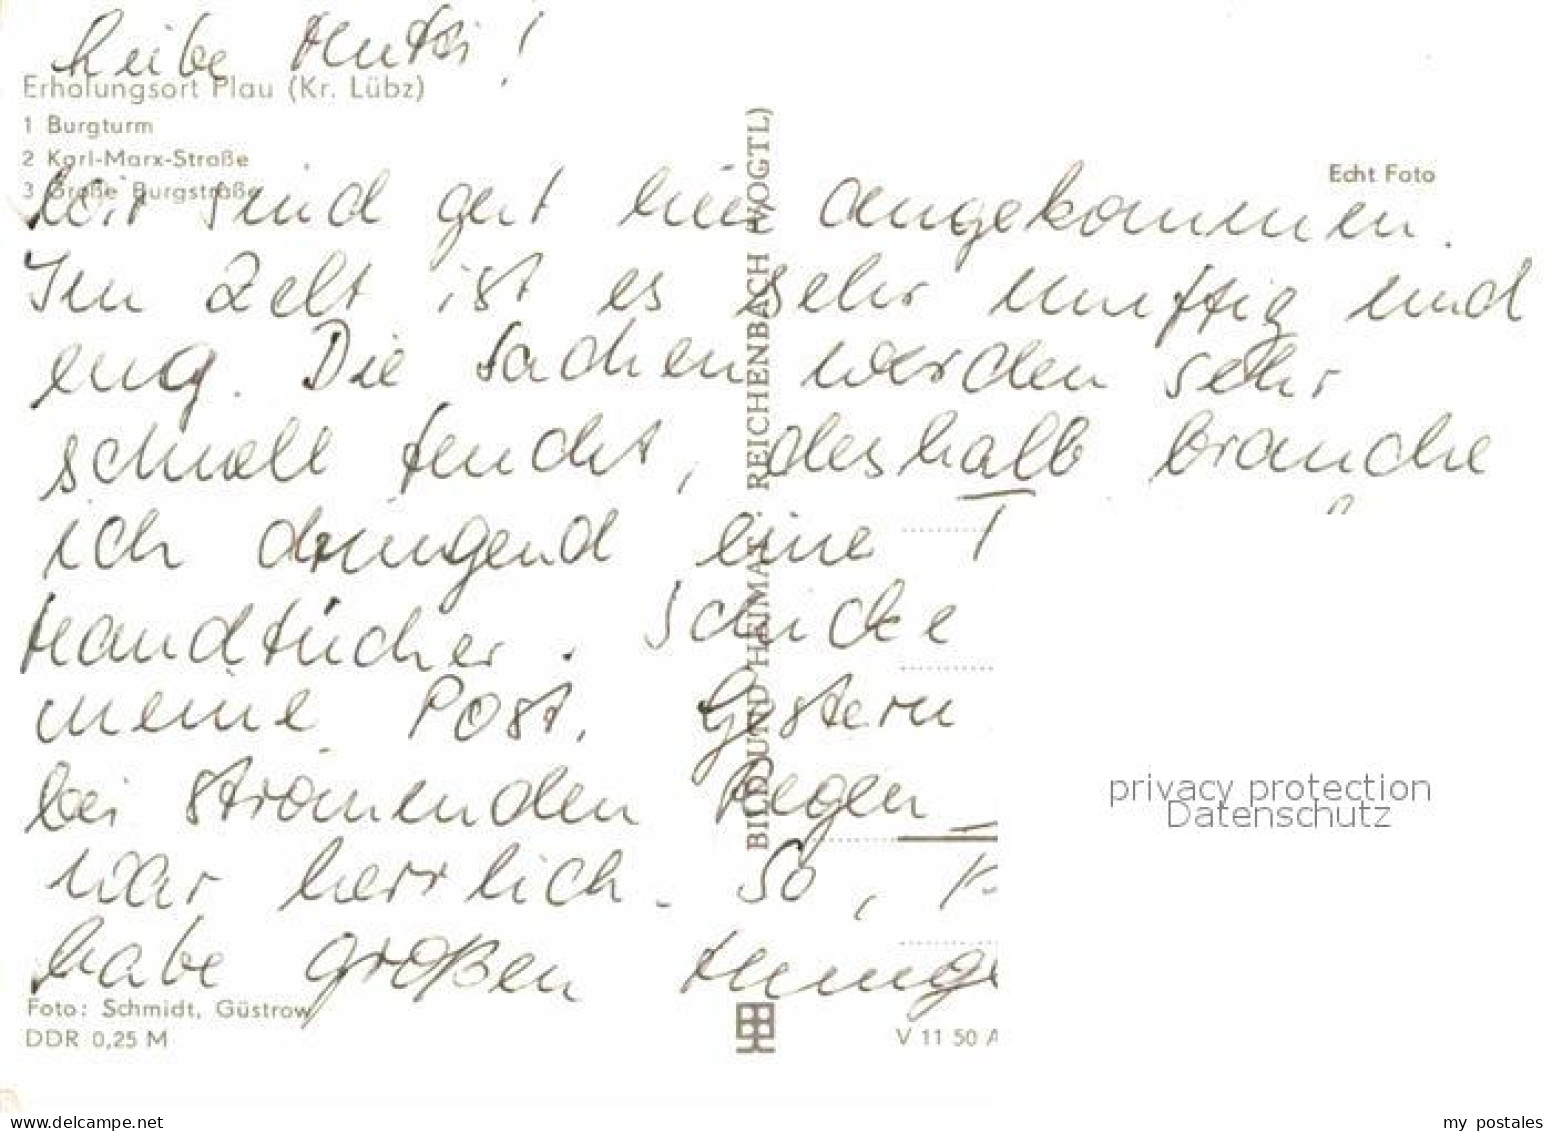 Liebe Mutti!
Erholungsort Plau (Kr. Lübz)
1 Burgturm
2 Karl-Marx-Straße
3 Große Burgstraße
Echt Foto
Wir sind gut hier angekommen.
Im Zelt ist es sehr muffig und
eng. Die Sachen werden sehr
schnell feucht, deshalb brauche
ich dringend eine T
Handtücher. Schicke
meine Post. Gestern
bei strömenden Regen
war herrlich. So,
habe großen Hunge
BILD UND HEIMAT REICHENBACH (VOGTL)
Foto: Schmidt, Güstrow
DDR 0,25 M
V 11 50 A
privacy protection
Datenschutz
www.delcampe.net
my_postales